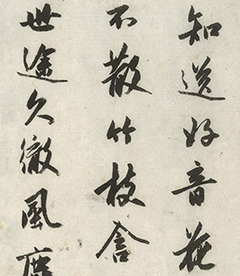 知送好音花
不散竹枝含
世途久徹風塵